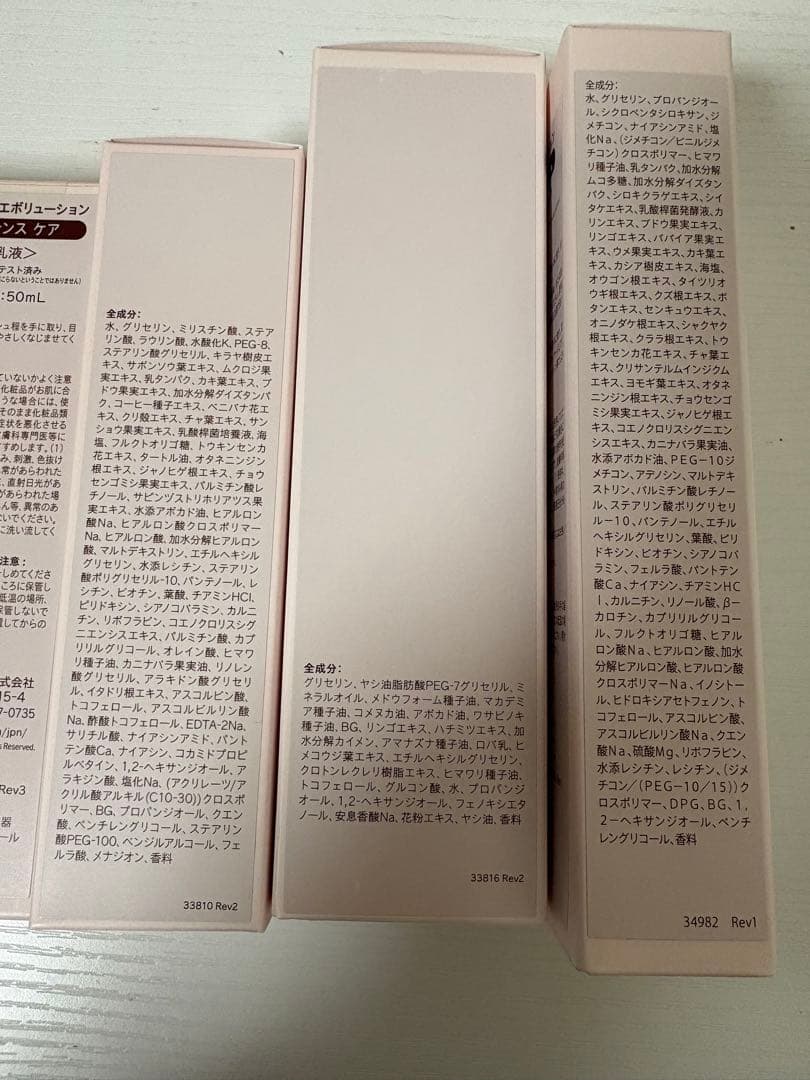 エボリューション
ンス ケア
乳液＞
テスト済み
:50mL
シュ程を手に取り、目
やさしくなじませてく
ていないかよく注意
化粧品がお肌に合
うな場合には、使
そのまま化粧品類
症状を悪化させる
膚科専門医等に
すすめします。(1)
み、刺激、色抜け
常があらわれた
、直射日光があ
があらわれた場
ん等、異常のあ
ないでください。
に洗い流してく
注意：
しめてくださ
ころに保管し
低温の場所、
保管しないで
してからの
式会社
15-4
7-0735
/jpn/
s Reserved.
Rev3
器
ール
全成分：
水、グリセリン、ミリスチン酸、ステア
リン酸、ラウリン酸、水酸化K、PEG-8、
ステアリン酸グリセリル、キラヤ樹皮エ
キス、サボンソウ葉エキス、ムクロジ果
実エキス、乳タンパク、カキ葉エキス、ブ
ドウ果実エキス、加水分解ダイズタンパ
ク、コーヒー種子エキス、ベニバナ花エ
キス、クリ殻エキス、チャ葉エキス、サン
ショウ果実エキス、乳酸桿菌培養液、海
塩、フルクトオリゴ糖、トウキンセンカ
花エキス、タートル油、オタネニンジン
根エキス、ジャノヒゲ根エキス、チョウ
センゴミシ果実エキス、パルミチン酸レ
チノール、サピンヅストリホリアツス果
実エキス、水添アボカド油、ヒアルロン
酸Na、ヒアルロン酸クロスポリマー
Na、ヒアルロン酸、加水分解ヒアルロン
酸、マルトデキストリン、エチルヘキシル
グリセリン、水添レシチン、ステアリン
酸ポリグリセリル-10、パンテノール、レ
シチン、ビオチン、葉酸、チアミンHCl、
ピリドキシン、シアノコバラミン、カルニ
チン、リボフラビン、コエノクロリスシグ
ニエンシスエキス、パルミチン酸、カプ
リリルグリコール、オレイン酸、ヒマワ
リ種子油、カニナバラ果実油、リノレン
酸グリセリル、アラキドン酸グリセリ
ル、イタドリ根エキス、アスコルビン酸、
トコフェロール、アスコルビルリン酸
Na、酢酸トコフェロール、EDTA-2Na、
サリチル酸、ナイアシンアミド、パント
テン酸Ca、ナイアシン、コカミドプロピ
ルベタイン、1,2-ヘキサンジオール、ア
ラキジン酸、塩化Na、(アクリレーツ/ア
クリル酸アルキル(C10-30))クロスポ
リマー、BG、プロパンジオール、クエン
酸、ペンチレングリコール、ステアリン
酸PEG-100、ベンジルアルコール、フェ
ルラ酸、メナジオン、香料
33810 Rev2
全成分：
グリセリン、ヤシ油脂肪酸PEG-7グリセリル、ミ
ネラルオイル、メドウフォーム種子油、マカデミ
ア種子油、コメヌカ油、アボカド油、ワサビノキ
種子油、BG、リンゴエキス、ハチミツエキス、加
水分解カイメン、アマナズナ種子油、ロバ乳、ヒ
メコウジ葉エキス、エチルヘキシルグリセリン、
クロトンレクレリ樹脂エキス、ヒマワリ種子油、
トコフェロール、グルコン酸、水、プロパンジ
オール、1,2-ヘキサンジオール、フェノキシエタ
ノール、安息香酸Na、花粉エキス、ヤシ油、香料
33816 Rev2
全成分：
水、グリセリン、プロパンジオー
ル、シクロペンタシロキサン、ジ
メチコン、ナイアシンアミド、塩
化Na、(ジメチコン/ビニルジメ
チコン)クロスポリマー、ヒマワ
リ種子油、乳タンパク、加水分解
ムコ多糖、加水分解ダイズタン
パク、シロキクラゲエキス、シイ
タケエキス、乳酸桿菌発酵液、カ
リンエキス、ブドウ果実エキス、
リンゴエキス、パパイア果実エ
キス、ウメ果実エキス、カキ葉エ
キス、カシア樹皮エキス、海塩、
オウゴン根エキス、タイツリオ
ウギ根エキス、クズ根エキス、ボ
タンエキス、センキュウエキス、
オニノダケ根エキス、シャクヤク
根エキス、クララ根エキス、トウ
キンセンカ花エキス、チャ葉エ
キス、クリサンテルムインジクム
エキス、ヨモギ葉エキス、オタネ
ニンジン根エキス、チョウセンゴ
ミシ果実エキス、ジャノヒゲ根エ
キス、コエノクロリスシグニエン
シスエキス、カニナバラ果実油、
水添アボカド油、PEG-10ジ
メチコン、アデノシン、マルトデキ
ストリン、パルミチン酸レチノー
ル、ステアリン酸ポリグリセリ
ル-10、パンテノール、エチル
ヘキシルグリセリン、葉酸、ピリ
ドキシン、ビオチン、シアノコバ
ラミン、フェルラ酸、パントテン
酸Ca、ナイアシン、チアミンHC
l、カルニチン、リノール酸、β-
カロチン、カプリリルグリコー
ル、フルクトオリゴ糖、ヒアルロ
ン酸Na、ヒアルロン酸、加水
分解ヒアルロン酸、ヒアルロン酸
クロスポリマーNa、イノシトー
ル、ヒドロキシアセトフェノン、ト
コフェロール、アスコルビン酸、
アスコルビルリン酸Na、クエン
酸Na、硫酸Mg、リボフラビン、
水添レシチン、レシチン、(ジメ
チコン/(PEG-10/15))ク
ロスポリマー、DPG、BG、1,
2-ヘキサンジオール、ペンチ
レングリコール、香料
34982 Rev1